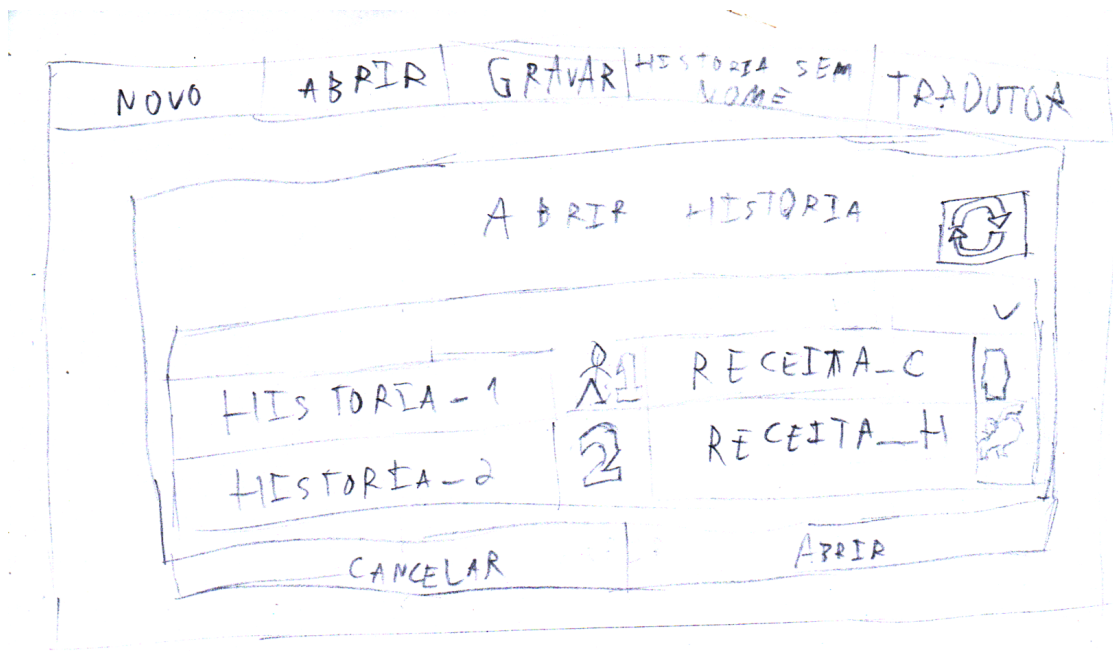 NOVO ABRIR GRAVAR HISTORIA SEM NOME TRADUTOR
ABRIR HISTORIA
HISTORIA_1 1 RECEITA_C
HISTORIA_2 2 RECEITA_H
CANCELAR ABRIR